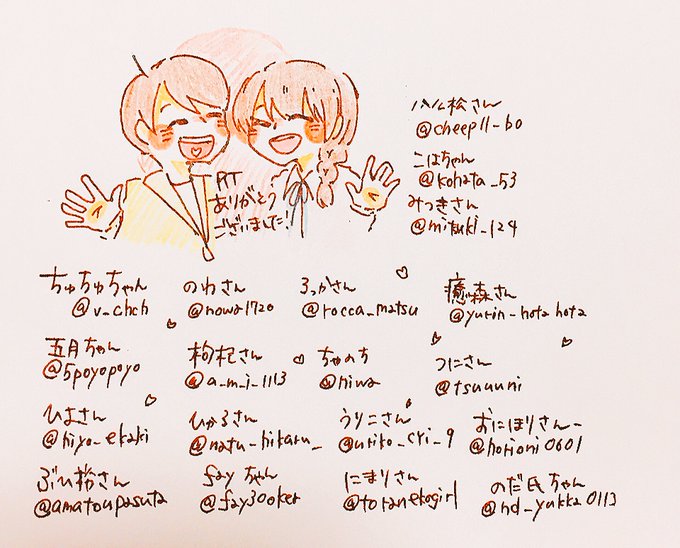 RT
ありがとう
ございました!
ハム松さん
@cheep11_bo
こはちゃん
@kohata_53
みつきさん
@mitsuki_124
ちゅちゅちゃん
@v_chch
のわさん
@nowa1720
ろっかさん
@rocca_matsu
癒森さん
@yurin_hotahota
五月ちゃん
@5poyopoyo
枸杞さん
@a_m_i_1113
ちゃのち
@niwa
つにさん
@tsuuuni
ひよさん
@hiyo_ekaki
ひかるさん
@natu_hikaru_
うりこさん
@uriko_cri_9
おにほりさんー
@horioni0601
ぶひ粉さん
@amatoupasuta
fayちゃん
@fay30oker
にまりさん
@toranekogirl
のだ氏ちゃん
@nd_yukka0113